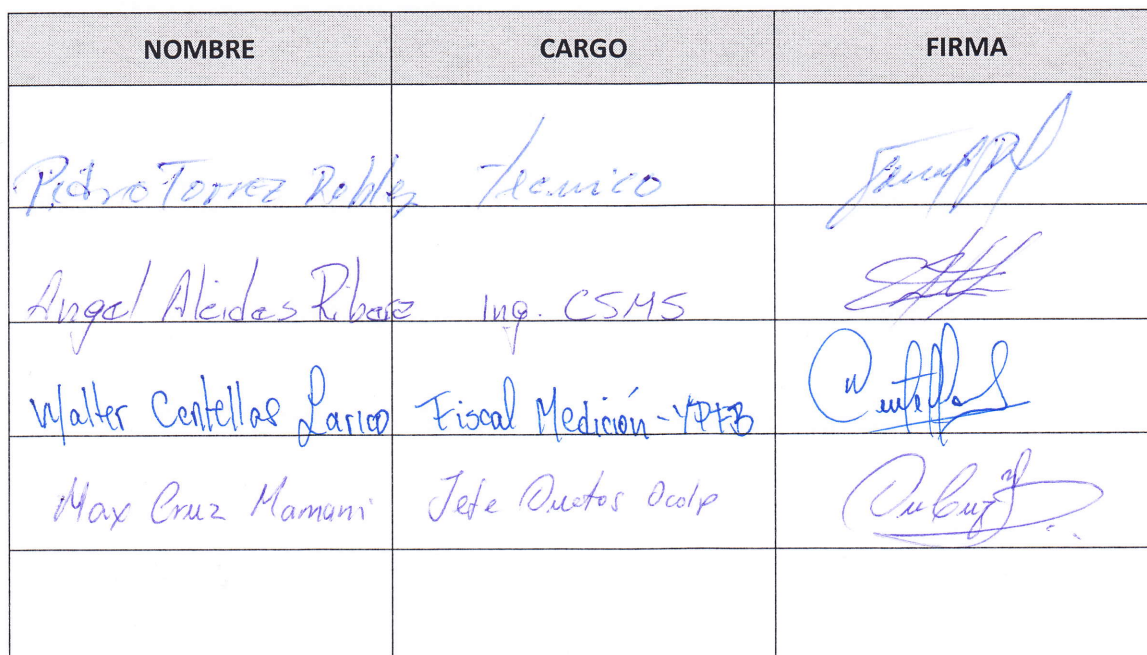 NOMBRE CARGO FIRMA
Pedro Torrez Robles Tecnico
Angel Alcides Ribera Ing. CSMS
Walter Centellas Larico Fiscal Medición-YPFB
Max Cruz Mamani Jefe Ductos